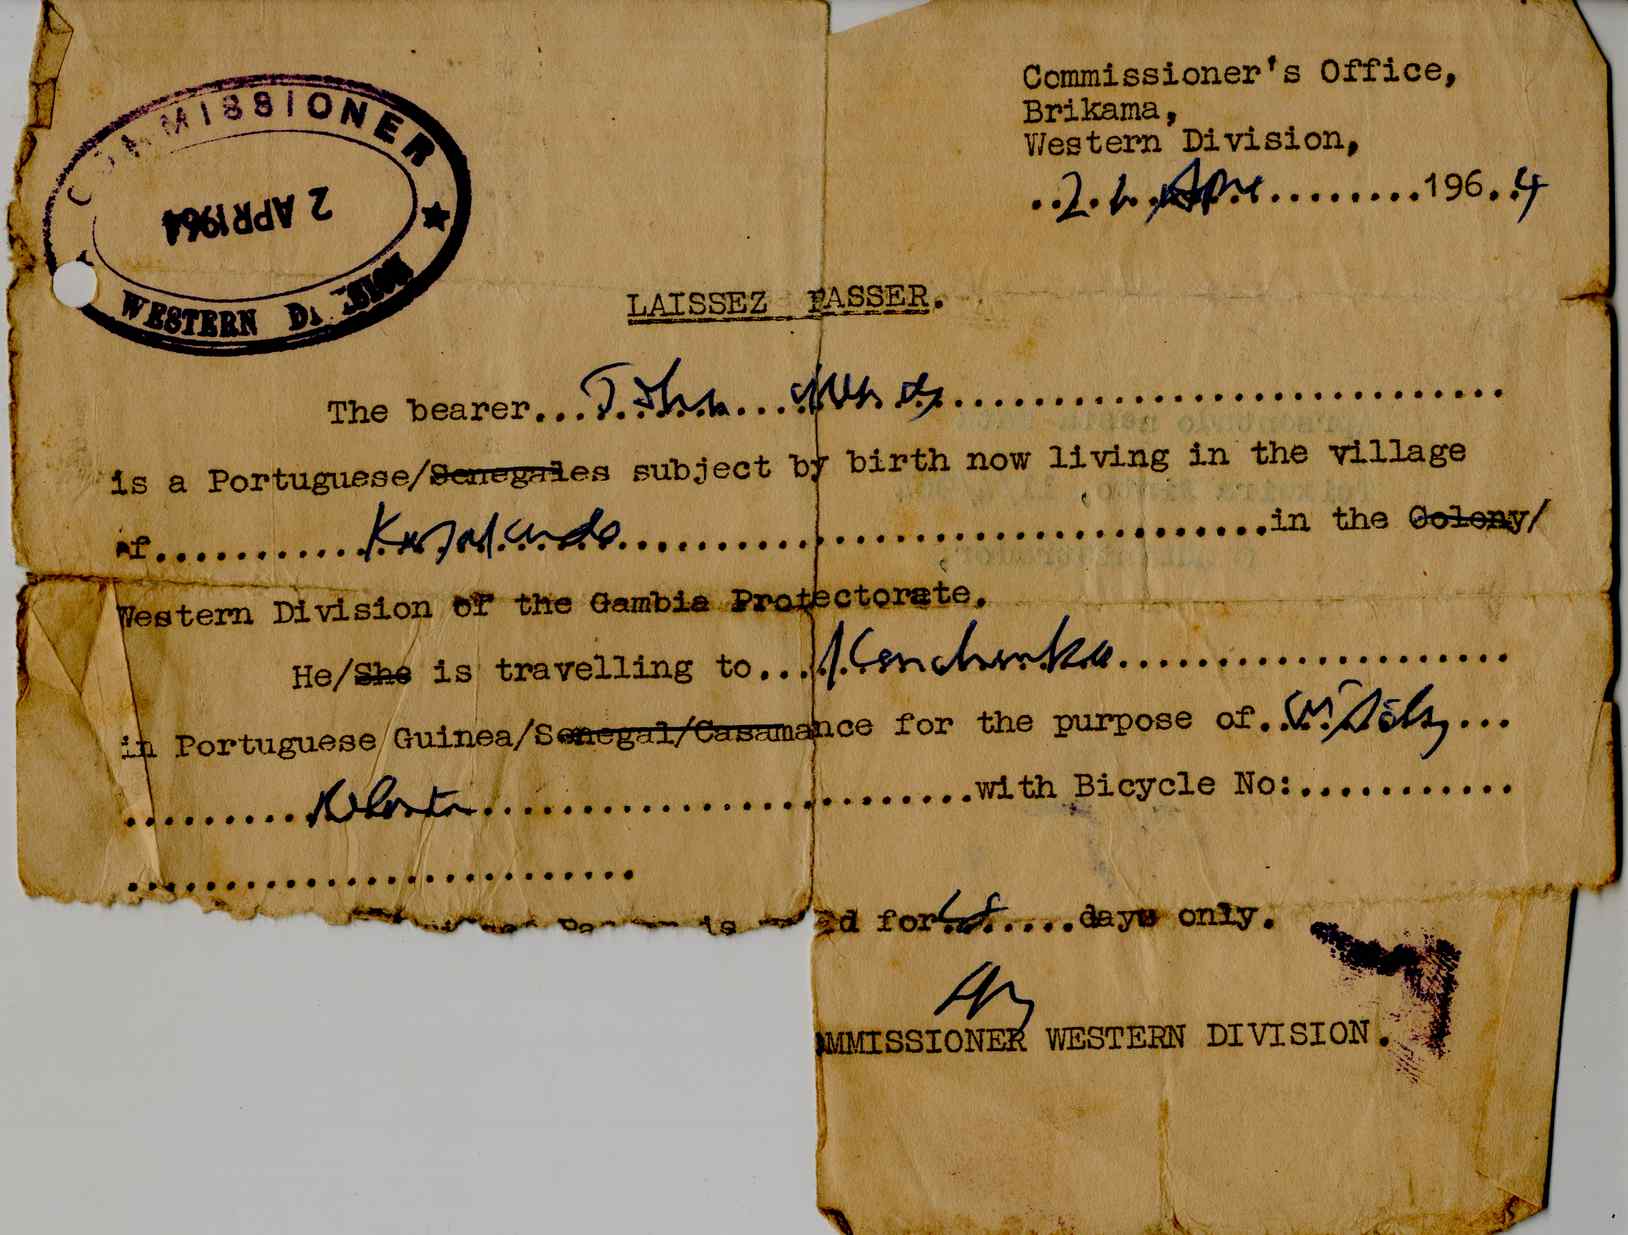 COMMISSIONER
2 APR 1964
WESTERN DIVISION
Commissioner's Office,
Brikama,
Western Division,
..2.........196.4
LAISSEZ PASSER.
The bearer...John.............................
is a Portuguese/Senegales subject by birth now living in the village
of..............................in the Colony/
Western Division of the Gambia Protectorate.
He/She is travelling to.......................
in Portuguese Guinea/Senegal/Casamance for the purpose of...........
..............................with Bicycle No:...........
..........................
is d for.......days only.
MMISSIONER WESTERN DIVISION.